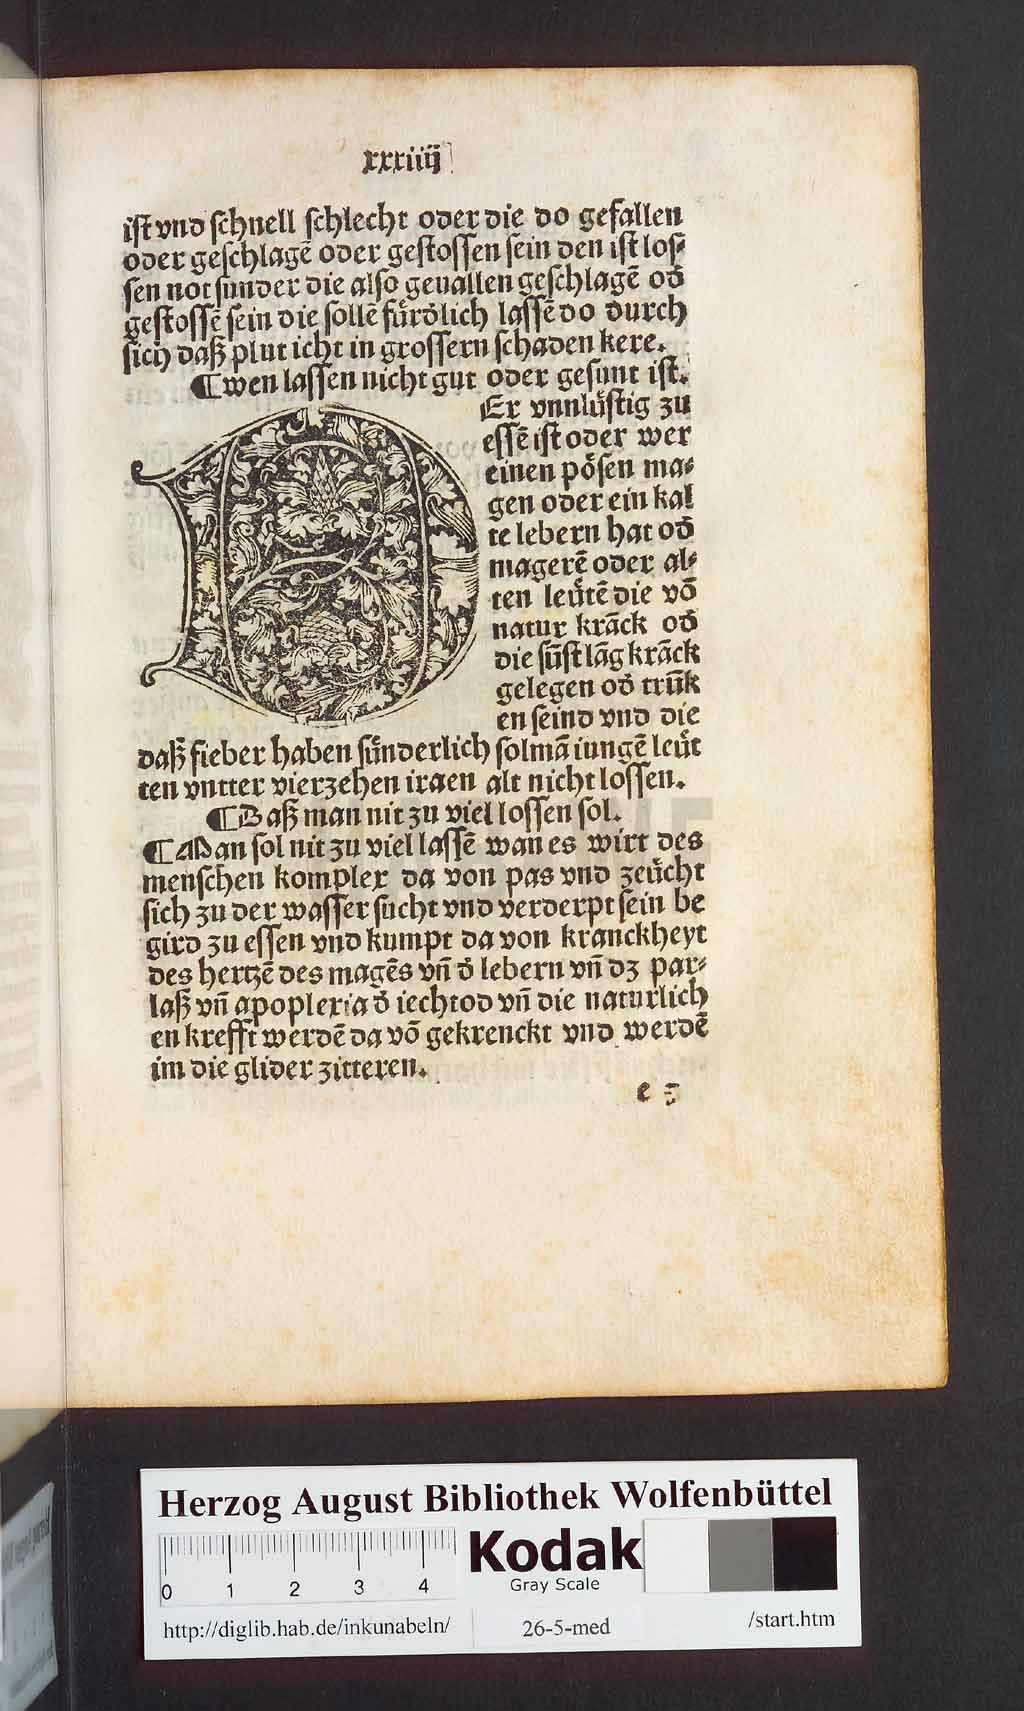 xxxiiij
ist vnd schnell schlecht oder die do gefallen
oder geschlagē oder gestossen sein den ist los⸗
sen not sunder die also geuallen geschlagē od̓
gestossē sein die sollē fürd̓lich lassē do durch
sich daß plut icht in grossern schaden kere.
¶ wen lassen nicht gut oder gesunt ist.
DEr vnnlüstig zu
essē ist oder wer
einen pösen ma⸗
gen oder ein kal
te lebern hat od̓
magerē oder al⸗
ten leütē die vō
natur krāck od̓
die sūst lāg krāck
gelegen od̓ trūk
en seind vnd die
daß fieber haben sünderlich sol mā iungē leüt
ten vntter vierzehen iraen alt nicht lossen.
¶ Daß man nit zu viel lossen sol.
¶ Man sol nit zu viel lassē wan es wirt des
menschen komplex da von pas vnd zeücht
sich zu der wasser sucht vnd verderpt sein be
gird zu essen vnd kumpt da von kranckheyt
des hertzē des magēs vn̄ d̓ lebern vn̄ dz par⸗
laß vn̄ apoplexia d̓ iechtod vn̄ die naturlich
en krefft werdē da vō gekrenckt vnd werdē
im die glider zitteren.
e 3
Herzog August Bibliothek Wolfenbüttel
0 1 2 3 4
Kodak
Gray Scale
http://diglib.hab.de/inkunabeln/
26-5-med
/start.htm